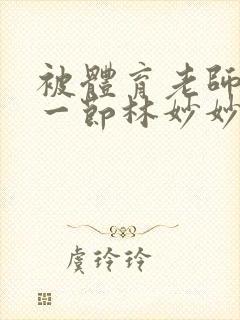 被體育老師
一節林妙妙
虞玲玲